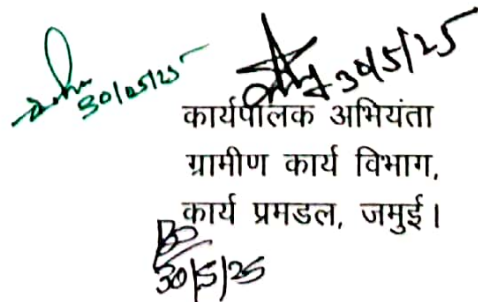 30/05/25
30/5/25
कार्यपालक अभियंता
ग्रामीण कार्य विभाग,
कार्य प्रमडल, जमुई।
30/5/25